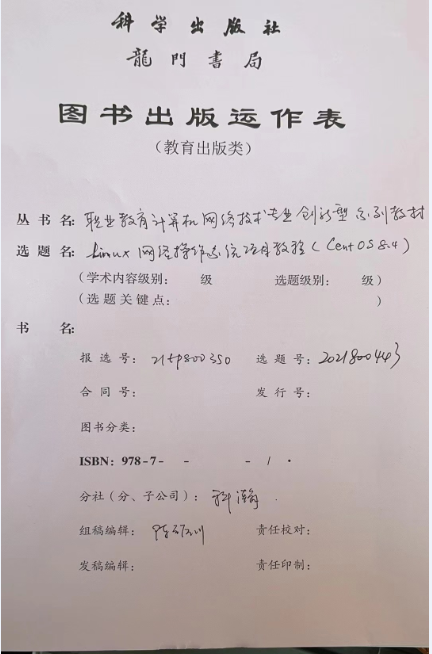 科学出版社
龍門書局
图书出版运作表
（教育出版类）
丛书名: 职业教育计算机网络技术专业创新型系列教材
选题名: Linux 网络操作系统项目教程（CentOS 8.4）
（学术内容级别： 级 选题级别： 级）
（选题关键点： ）
书 名:
报选号: 21tp800350 选题号: 2021800443
合同号: 发行号:
图书分类:
ISBN: 978-7- - - / ·
分社（分、子公司）: 科瀚
组稿编辑: 责任校对:
发稿编辑: 责任印制: